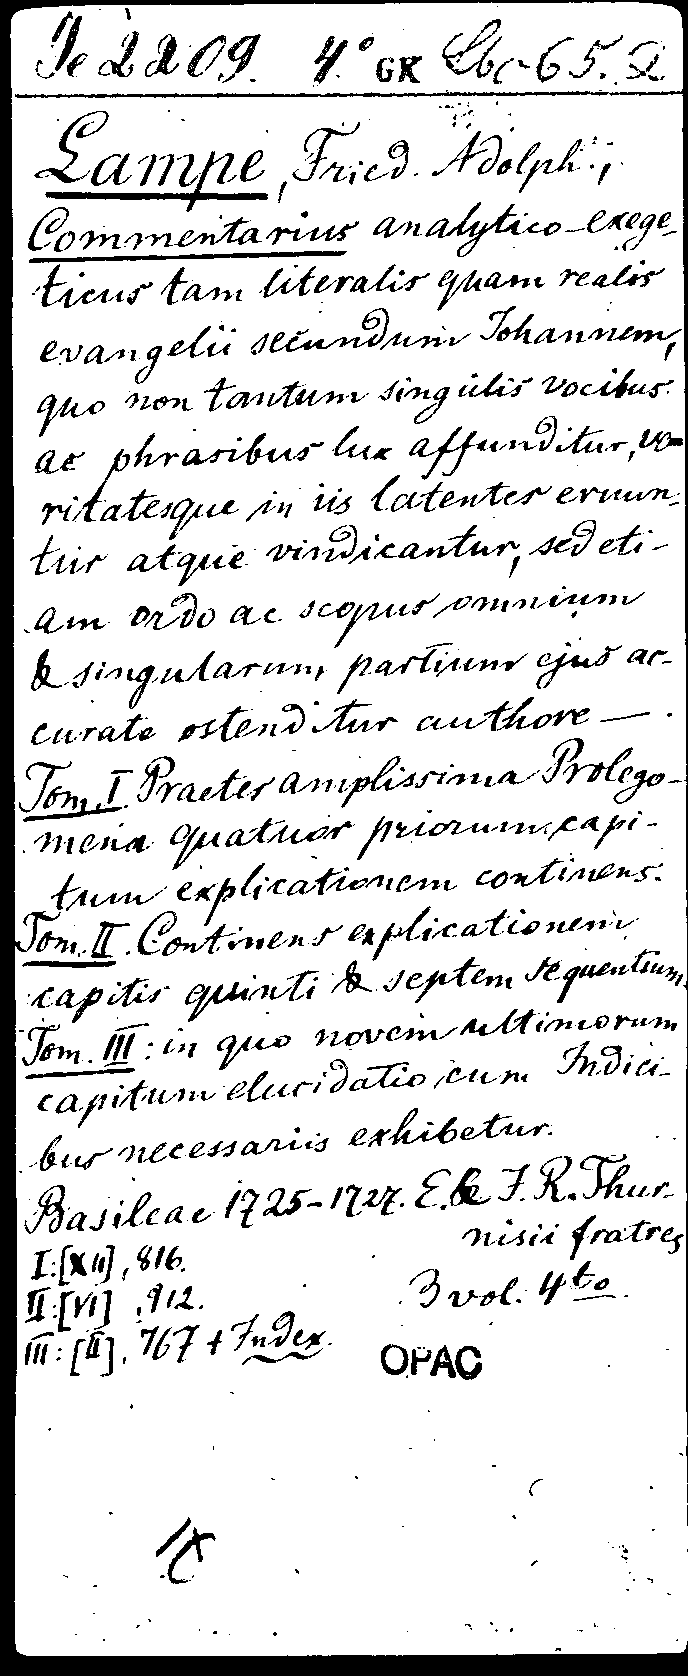 Je 2209. 4.° GK Lbc-65.2
Lampe, Fried. Adolph.,
Commentarius analytico-exege-
ticus tam literalis quam realis
evangelii secundum Johannem,
quo non tantum singulis vocibus
ac phrasibus lux affunditur, ve-
ritatesque in iis latentes eruun-
tur atque vindicantur, sed eti-
am ordo ac scopus omnium
& singularum partium ejus ac-
curate ostenditur authore —.
Tom. I Praeter amplissima Prolego-
mena quatuor priorum capi-
tum explicationem continens.
Tom. II. Continens explicationem
capitis quinti & septem sequentium
Tom. III: in quo novem ultimorum
capitum elucidatio cum Indici-
bus necessariis exhibetur.
Basileae 1725-1727. E. & J. R. Thur-
nisii fratres
I: [XII], 816.
II: [VI], 912. 3 vol. 4to
III: [II], 767 + Index
OPAC